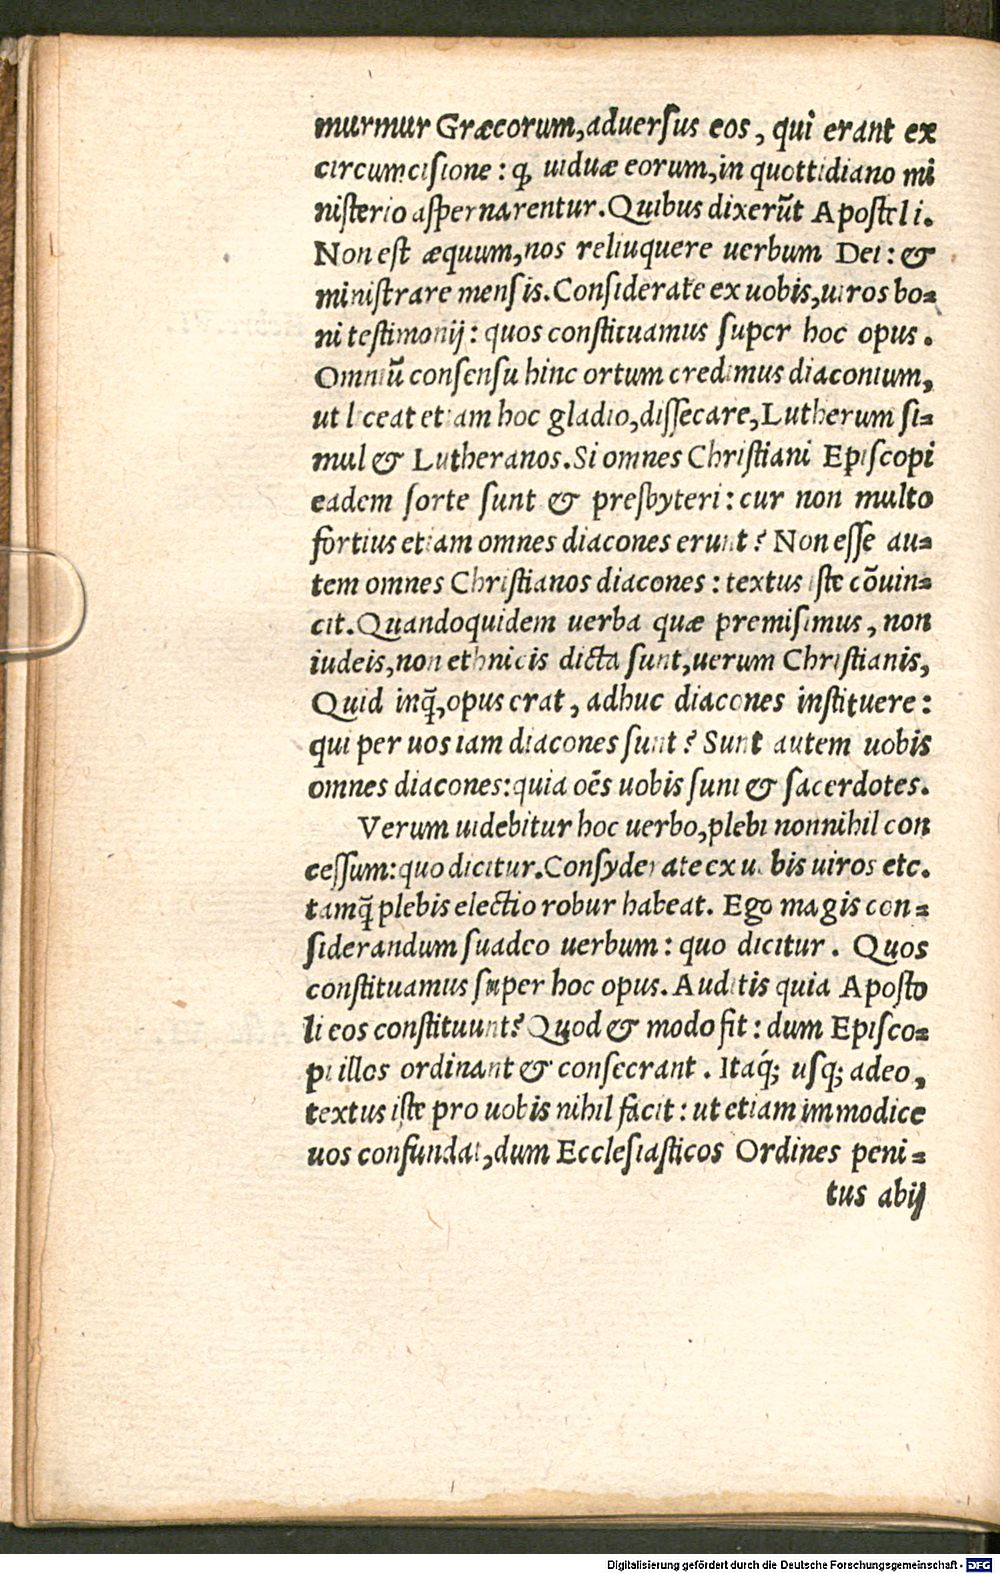 murmur Græcorum,aduerſus eos, qui erant ex
circumciſione: ꝙ uiduæ eorum,in quottidiano mi
niſterio aſpernarentur.Quibus dixerūt Apoſteli.
Non eſt æquum,nos reliuquere uerbum Dei: &
miniſtrare menſis.Conſiderate ex uobis,uiros bo⸗
ni teſtimonij: quos conſtituamus ſuper hoc opus.
Omniū conſenſu hinc ortum credimus diaconium,
ut liceat etiam hoc gladio,diſſecare,Lutherum ſi⸗
mul & Lutheranos.Si omnes Chriſtiani Epiſcopi
eadem ſorte ſunt & preſbyteri: cur non multo
fortius etiam omnes diacones erunt? Non eſſe au⸗
tem omnes Chriſtianos diacones: textus iſte cōuin⸗
cit.Quandoquidem uerba quæ premiſimus, non
iudeis,non ethnicis dicta ſunt,uerum Chriſtianis,
Quid inq̄,opus erat, adhuc diacones inſtituere:
qui per uos iam diacones ſunt? Sunt autem uobis
omnes diacones:quia oēs uobis ſunt & ſacerdotes.
Verum uidebitur hoc uerbo,plebi nonnihil con
ceſſum:quo dicitur.Conſyderate ex uobis uiros etc.
tamq̄ plebis electio robur habeat. Ego magis con⸗
ſiderandum ſuadeo uerbum: quo dicitur. Quos
conſtituamus ſuper hoc opus. Auditis quia Apoſto
li eos conſtituunt? Quod & modo fit: dum Epiſco⸗
pi illos ordinant & conſecrant. Itaq́; uſq; adeo,
textus iſte pro uobis nihil facit: ut etiam immodice
uos confundat,dum Eccleſiaſticos Ordines peni⸗
tus abij
Digitalisierung gefördert durch die Deutsche Forschungsgemeinschaft - DFG